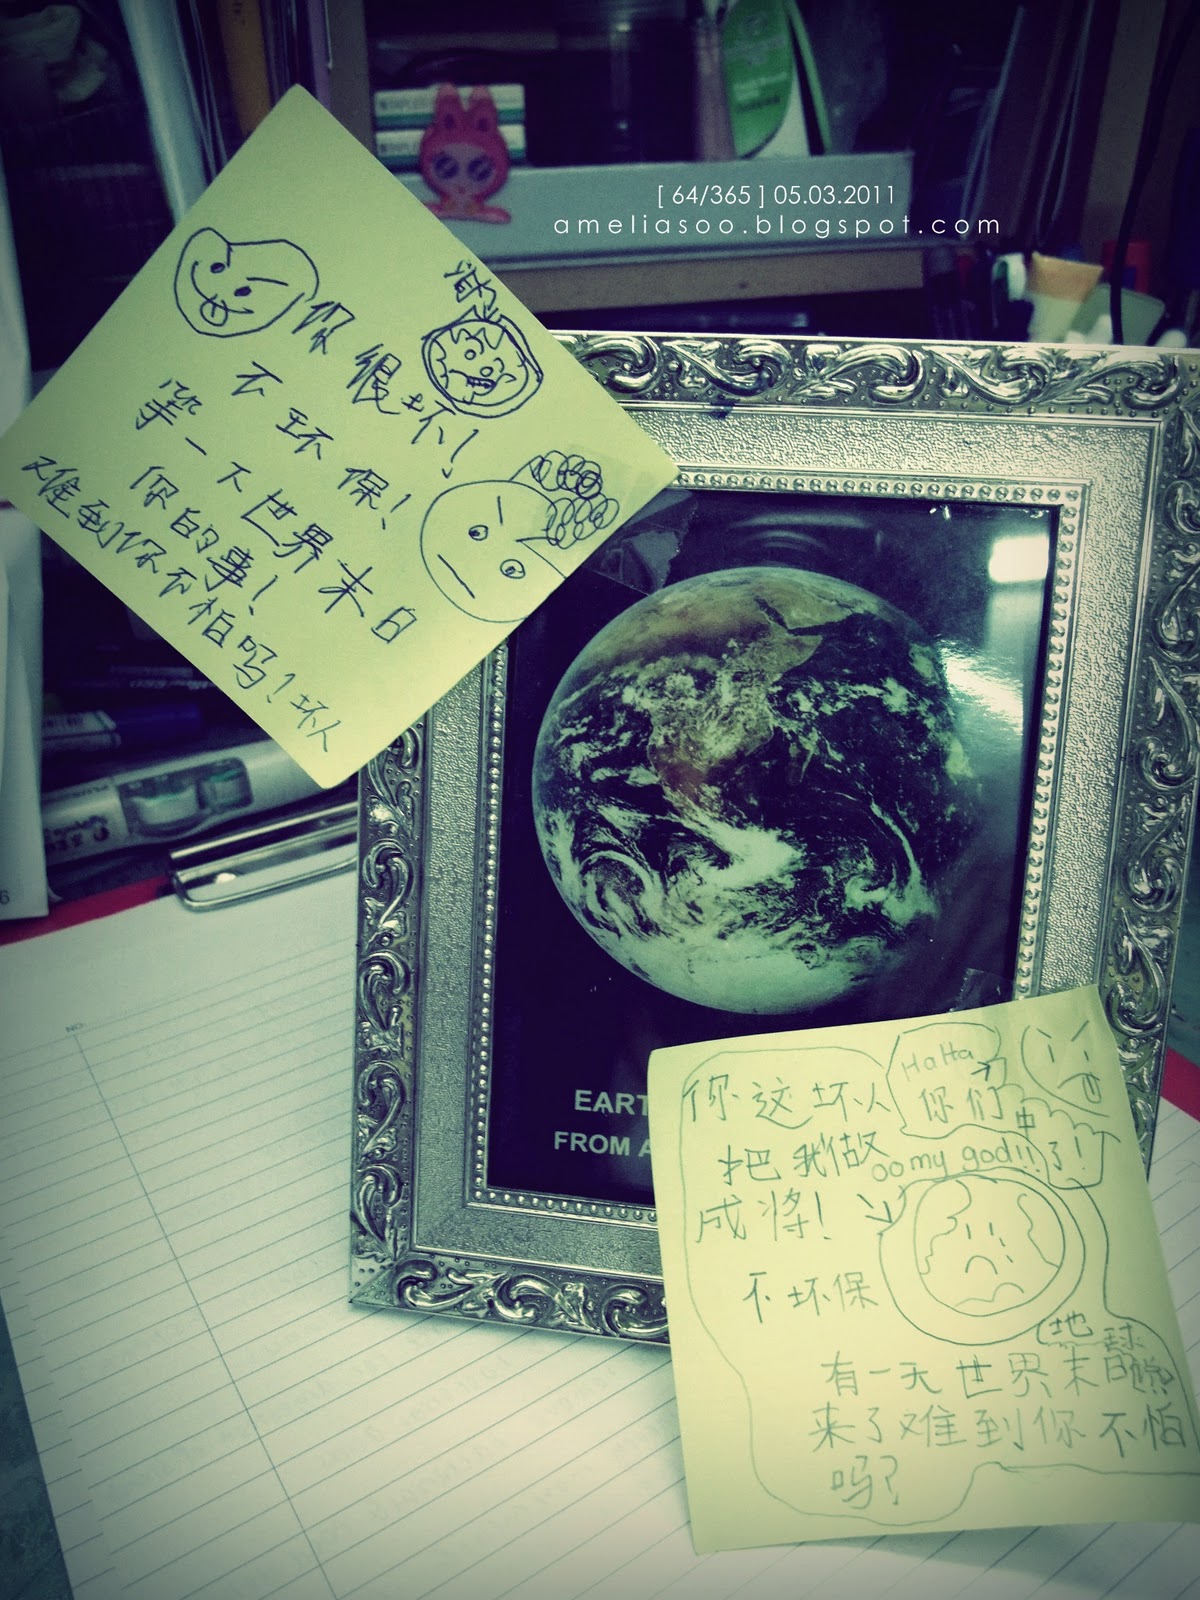 [ 64/365 ] 05.03.2011
ameliasoo.blogspot.com
你很坏!
不环保!
等一下世界末日
你的事!
难到你不怕吗!坏人
EART
FROM A
HaHa
你这坏人
你们中
把我做
oo my god!!
了!
成将!
不环保
地球
有一天世界末日
来了难到你不怕
吗?
NO: